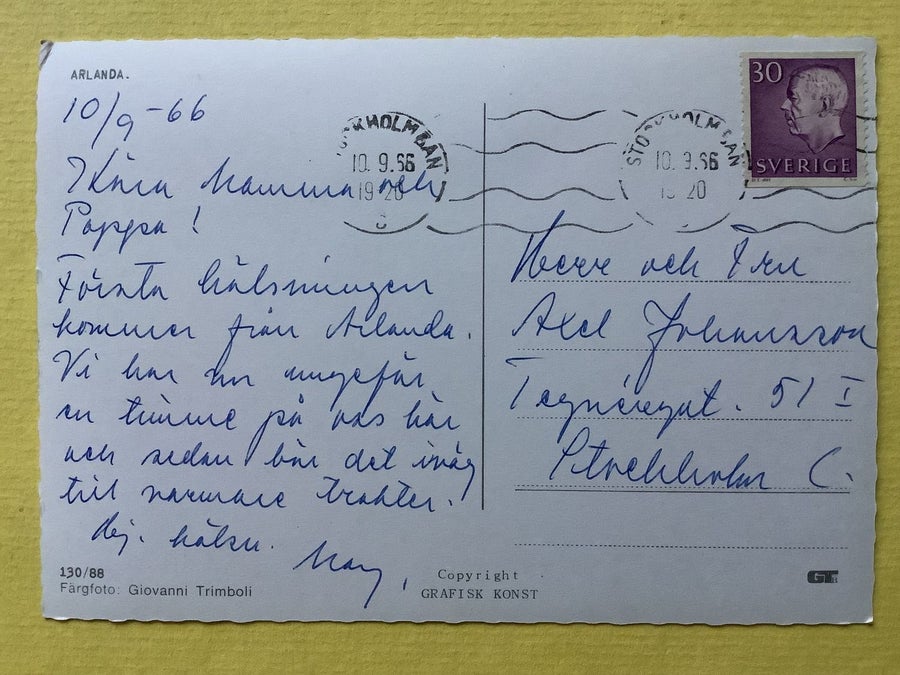 ARLANDA.
10/9-66
Kära Mamma och
Pappa!
Första hälsningen
kommer från Arlanda.
Vi har nu ungefär
en timme på oss här
och sedan bär det iväg
till varmare trakter.
Hej. hälsn.
May,
130/88
Färgfoto: Giovanni Trimboli
Copyright
GRAFISK KONST
STOCKHOLM BAN
10.9.66
19 20
STOCKHOLM BAN
10.9.66
20
30
SVERIGE
Herr och Fru
Axel Johansson
Tegnérgat. 51 I
Stockholm C.